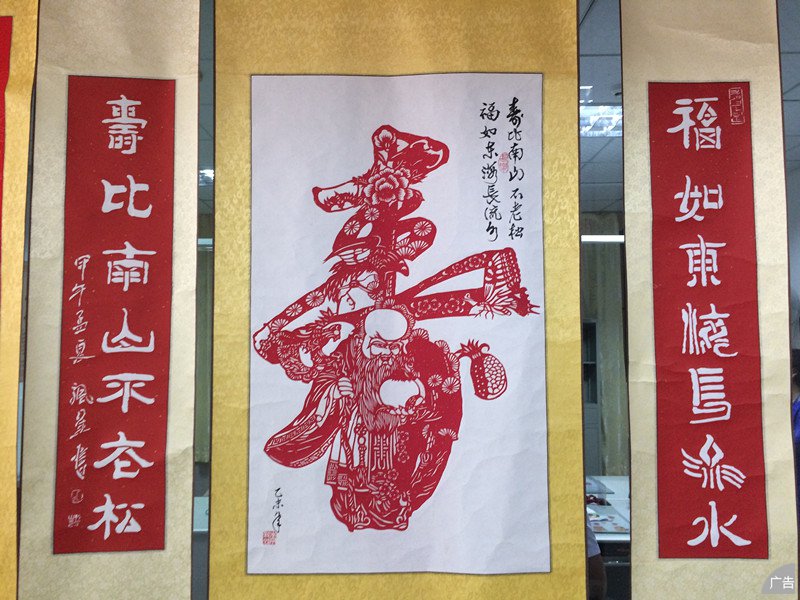 福如東海長流水
寿比南山不老松
福如东海長流水
寿
乙未年
壽比南山不老松
甲午孟夏
書
广告